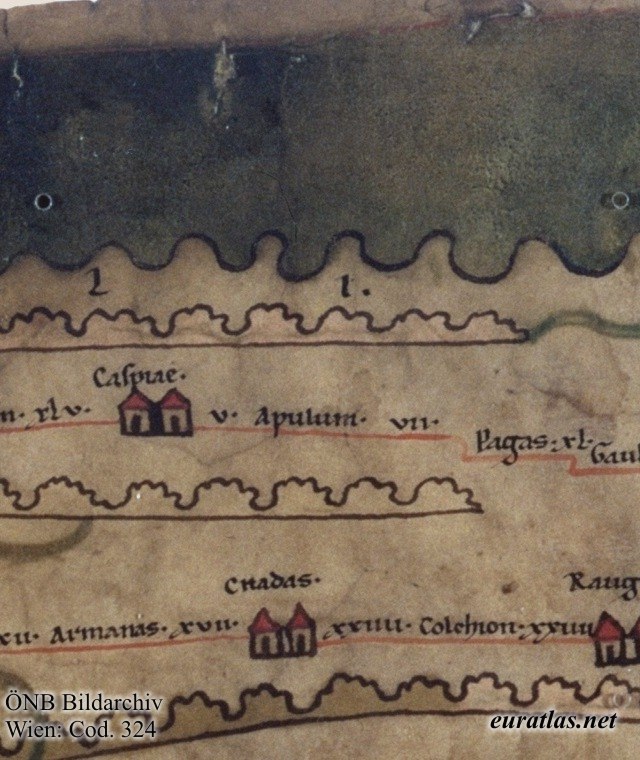 l i.
Caspiae.
n. xlv. v. Apulum. vii.
Pagas. xl. Gaul
Cnadas. Raug
xii. Armanas. xvii. xxiiii. Colchion. xxiiii
ÖNB Bildarchiv
Wien: Cod. 324
euratlas.net